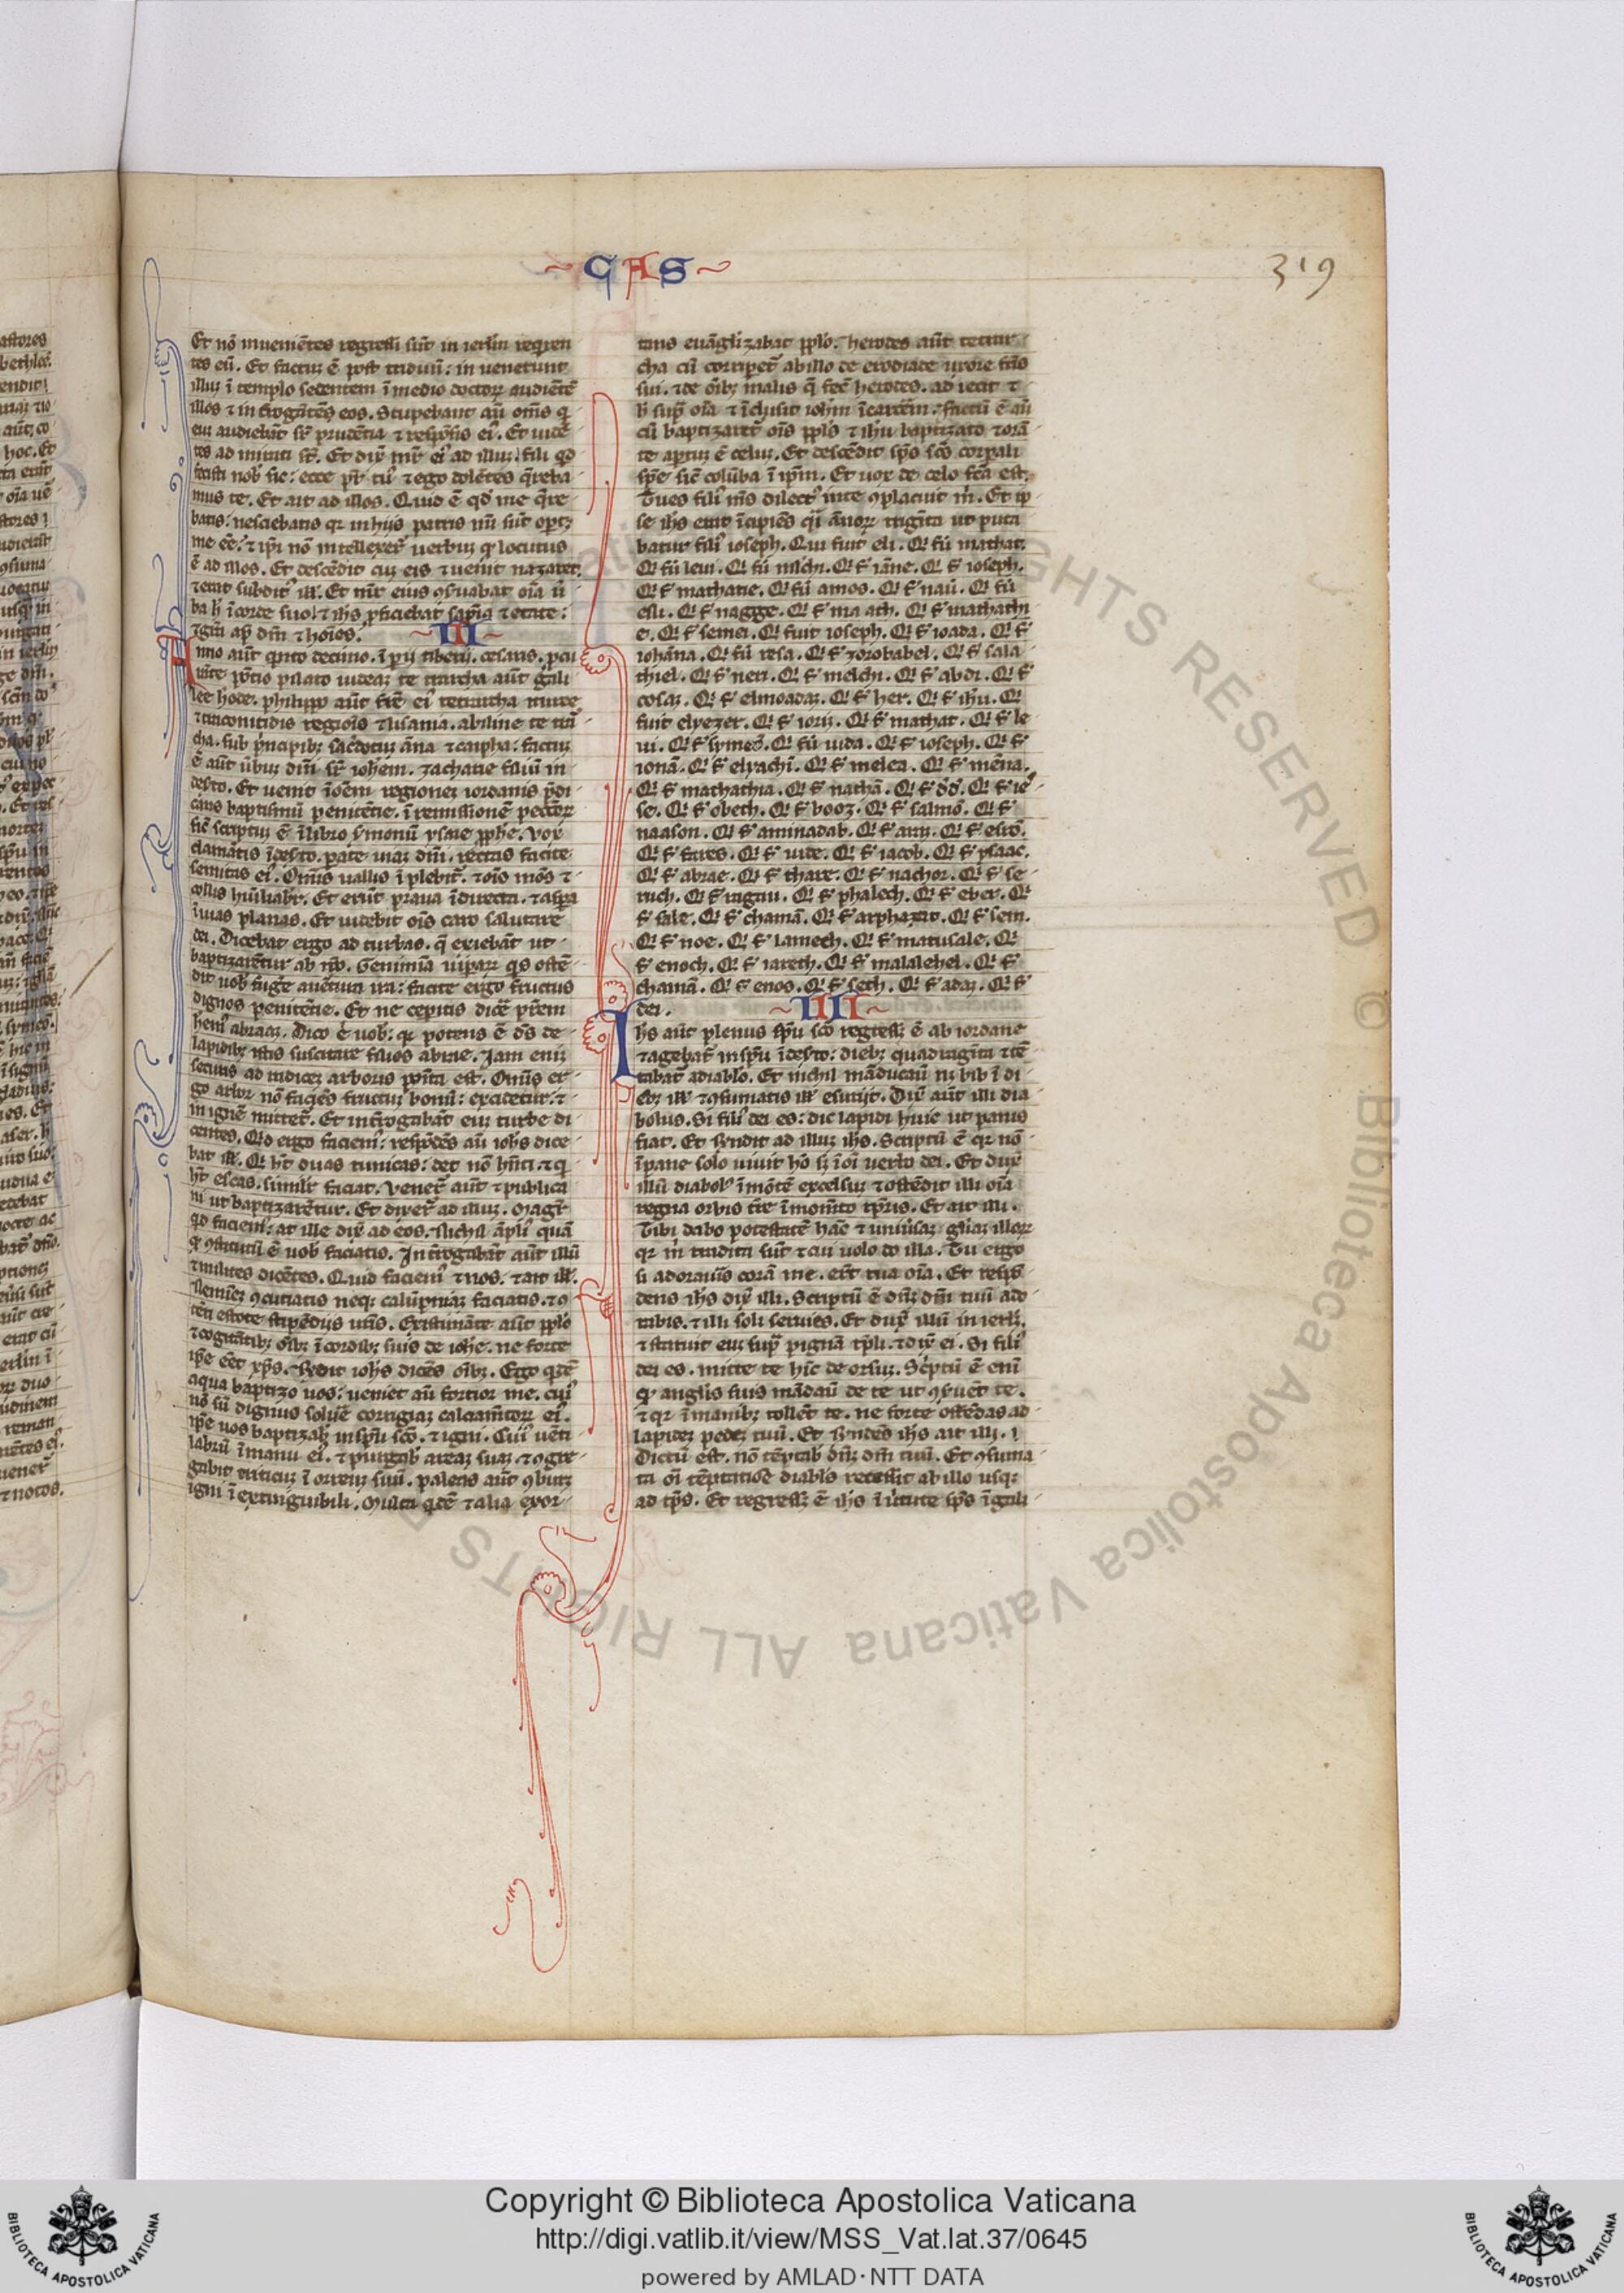 ~ CAS ~
319
Et nō inueniētes regressi sūt in ierlm requiren
tes eū. Et factuꝫ ē post triduū: in uenerunt
illuꝫ ī templo sedentem ī medio doctoꝝ audiētē
illos ⁊ in t̄rogātēs eos. Stupebant aū om̄s q̄
eū audiebāt sr̄ prudētia ⁊ respōsis eiꝰ. Et uidē
tes ad mirati st̄. Et dix̄ mr̄ eiꝰ ad illuꝫ. fili qd
fecisti nob̄ sic: ecce pr̄ tuꝰ ⁊ ego dolētes q̄reba
mus te. Et ait ad illos. Quid ē qd me q̄re
batis: nesciebatis qr in hijs patris mī sūt oportꝫ
me eē: ⁊ ipi nō intellexer̄ uerbuꝫ qd locutus
ē ad illos. Et descēdit cuꝫ eis ⁊ uenit nazaret.
⁊ erat subditꝰ ill̄. Et mr̄ eius ꝯseruabat oīa ū
ba h̄ ī corde suo. ⁊ ihs pficiebat sapīa ⁊ etate:
⁊ grā ap̄ dm̄ ⁊ hoīes. ~ III ~
Anno aūt qnto decimo. ī pij tiberij. cesaris. pcu
rāte pōtio pilato iudeaꝫ te trarcha aūt gali
lee herode. philippo aūt frē eiꝰ tetrarcha ituree
⁊ traconitidis regiōis ⁊ lisania. abiline te trar
cha. sub p̄ncipibꝫ sacerdotuꝫ āna ⁊ caipha: factuꝫ
ē aūt ūbuꝫ dn̄i sr̄ iohēm. zacharie filiū in
deserto. Et uenit ī oēm regioneꝫ iordanis p̄di
cans baptismū penitētie. ī remissionē peccōꝝ
sic̄ scriptuꝫ ē ī libro sermonū ysaie pphe. Vox
clamātis ī deserto. parate uiaꝫ dn̄i. rectas facite
semitas eiꝰ. Omīs uallis ī plebit̄. ⁊ oīs mōs ⁊
collis hūiliabr̄. Et erūt praua ī directa. ⁊ aspa
ī uias planas. Et uidebit oīs caro salutare
dei. Dicebat ergo ad turbas. q̄ exiebāt ut
baptizarētur ab ipō. Genimīa uiparꝝ qs ostē
dit uob̄ fuge̅ auētura ira: facite ergo fructus
dignos penitētie. Et ne cepitis dice̅ pr̄em
hemꝰ abraaꝫ. Dico eī uob̄: qr potens ē ds̄ de
lapidibꝫ istis suscitare filios abrae. Jam enīꝫ
securis ad radiceꝫ arboris posita est. Omīs er
go arbor nō faciēs fructuꝫ bonū: excidetur: ⁊
in ignē mittet̄. Et int̄rogabāt eū turbe di
centes. Qd ergo faciemꝰ: respōdēs aū iohs dice
bat ill̄. Q hꝫ duas tunicas: det nō hn̄ti. ⁊ q
hꝫ escas. similr faciat. Vener̄ aūt ⁊ publica
ni ut baptizarētur. Et dixer̄ ad illuꝫ. magr̄
qd faciemꝰ: at ille dix̄ ad eos. Nichil āpliꝰ quā
qd ꝯstitutū ē uob̄ faciatis. Int̄rogabāt aūt illū
⁊ milites dicētes. Quid faciemꝰ ⁊ nos. ⁊ ait ill̄.
Nemīeꝫ ꝯcutiatis neqꝫ calūpniaꝫ faciatis. ⁊ ꝯ
tēti estote stipēdijs ur̄is. Existimāte aūt pplo
⁊ cogitātibꝫ oībꝫ ī cordibꝫ suis de iohe. ne forte
ipe eēt xps̄. Rn̄dit iohs dicēs oībꝫ. Ego qdē
aqua baptizo uos: ueniet aū fortior me. cuiꝰ
nō sū dignus soluē corrigiaꝫ calciam̄toꝝ eiꝰ.
ipe uos baptizab̄ in spū scō. ⁊ igni. Cuiꝰ uēti
labrū ī manu eiꝰ. ⁊ purgab̄ areaꝫ suaꝫ. ⁊ ꝯgre
gabit triticuꝫ ī orreuꝫ suū. paleas aūt ꝯburꝫ
igni ī extinguibili. Multa qdē ⁊ alia exor
tans euāglizabat pplo. herodes aūt tetrar
cha cū corripet̄ ab illo de erodiade uxore fr̄is
sui. ⁊ de oībꝫ malis q̄ fec̄ herodes. ad iecit ⁊
h̄ sup̄ oīa ⁊ īclusit iohm̄ ī carcērē. factū ē aū
cū baptizaret̄ oīs ppls ⁊ ihu baptizato ⁊ orā
te aptuꝫ ē celuꝫ. Et descēdit spc̄ sc̄s corpali
spē sic̄ colūba ī ipm̄. Et uox de celo fc̄a est.
Tu es filiꝰ ms̄ dilectꝰ in te ꝯplacuit m̄. Et ip
se ihs erat īcipiēs qi ānoꝝ triginta ut puta
batur filiꝰ ioseph. Qui fuit eli. Q fū mathat.
Q fū leui. Q fū melchi. Q f̄ iāne. Q f̄ ioseph.
Q f̄ mathatie. Q fū amos. Q f̄ naū. Q fū
esli. Q f̄ nagge. Q f̄ ma ath. Q f̄ mathathi
e. Q f̄ semei. Q fuit ioseph. Q f̄ ioada. Q f̄
iohāna. Q fū resa. Q f̄ zorobabel. Q f̄ sala
thiel. Q f̄ neri. Q f̄ melchi. Q f̄ abdi. Q f̄
cosaꝫ. Q f̄ elmoadaꝫ. Q f̄ her. Q f̄ ihu. Q
fuit elyezer. Q f̄ ioriꝫ. Q f̄ mathat. Q f̄ le
ui. Q f̄ symeō. Q fū iuda. Q f̄ ioseph. Q f̄
ionā. Q f̄ elyachī. Q f̄ melea. Q f̄ mēna.
Q f̄ mathathia. Q f̄ nathā. Q f̄ dd̄. Q f̄ ie
se. Q f̄ obeth. Q f̄ booz. Q f̄ salmō. Q f̄
naason. Q f̄ aminadab. Q f̄ aram. Q f̄ esrō.
Q f̄ fares. Q f̄ iude. Q f̄ iacob. Q f̄ ysaac.
Q f̄ abrae. Q f̄ thare. Q f̄ nachor. Q f̄ se
ruch. Q f̄ ragau. Q f̄ phalech. Q f̄ eber. Q
f̄ sale. Q f̄ chamā. Q f̄ arphaxat. Q f̄ sem.
Q f̄ noe. Q f̄ lamech. Q f̄ matusale. Q
f̄ enoch. Q f̄ iareth. Q f̄ malalehel. Q f̄
chamā. Q f̄ enos. Q f̄ seth. Q f̄ adaꝫ. Q f̄
dei. ~ IIII ~
Ihs aūt plenus spū scō regressꝫ ē ab iordane
⁊ agebat̄ in spū ī deserto: diebꝫ quadraginta ⁊ tē
tabat̄ a diablo. Et nichil māducauit ī di
ebꝫ ill̄ ⁊ ꝯsumatis ill̄ esurijt. Dix̄ aūt illi dia
bolus. Si filiꝰ dei es: dic lapidi huic ut panis
fiat. Et rn̄dit ad illuꝫ ihs. Scriptū ē qr nō
ī pane solo uiuit hō sꝫ ī oī uerbo dei. Et dux̄
illū diabolꝰ ī mōtē excelsuꝫ ⁊ ostēdit illi oīa
regna orbis tr̄e ī momēto tp̄ris. Et ait illi.
Tibi dabo potestatē hāc ⁊ uniuersaꝫ gliaꝫ illoꝝ
qr m̄ tradita sūt ⁊ cui uolo do illa. Tu ergo
si adoraueris corā me. erūt tua oīa. Et respō
dens ihs dix̄ illi. Scriptū ē dn̄ꝫ dm̄ tuū ado
rabis. ⁊ illi soli seruies. Et dux̄ illū in ierlꝫ.
⁊ statuit eū sup̄ pignā tp̄li. ⁊ dix̄ ei. Si filiꝰ
dei es. mitte te hīc deorsuꝫ. Sc̄ptū ē enī
qd anglis suis mādauit de te ut ꝯseruēt te.
⁊ qr ī manibꝫ tollēt te. ne forte offēdas ad
lapideꝫ pedeꝫ tuū. Et rn̄dēs ihs ait illi.
Dictū est. nō tēptab̄ dn̄ꝫ dm̄ tuū. Et ꝯsuma
ta oī tēptatiōe diablꝰ recessit ab illo usqꝫ
ad tp̄s. Et regressꝫ ē ihs ī uirtute spc̄ ī gali
Copyright © Biblioteca Apostolica Vaticana
http://digi.vatlib.it/view/MSS_Vat.lat.37/0645
powered by AMLAD·NTT DATA
BIBLIOTECA APOSTOLICA VATICANA
BIBLIOTECA APOSTOLICA VATICANA
ALL RIGHTS RESERVED © Biblioteca Apostolica Vaticana